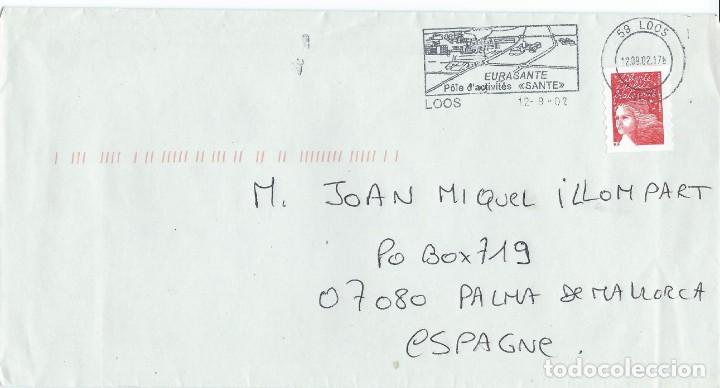 59 LOOS
12.09.02.17H
EURASANTE
Pôle d'activités «SANTE»
LOOS 12-9-02
M. JOAN MIQUEL ILLOMPART
PO BOX 719
07080 PALMA DE MALLORCA
ESPAGNE.
todocoleccion